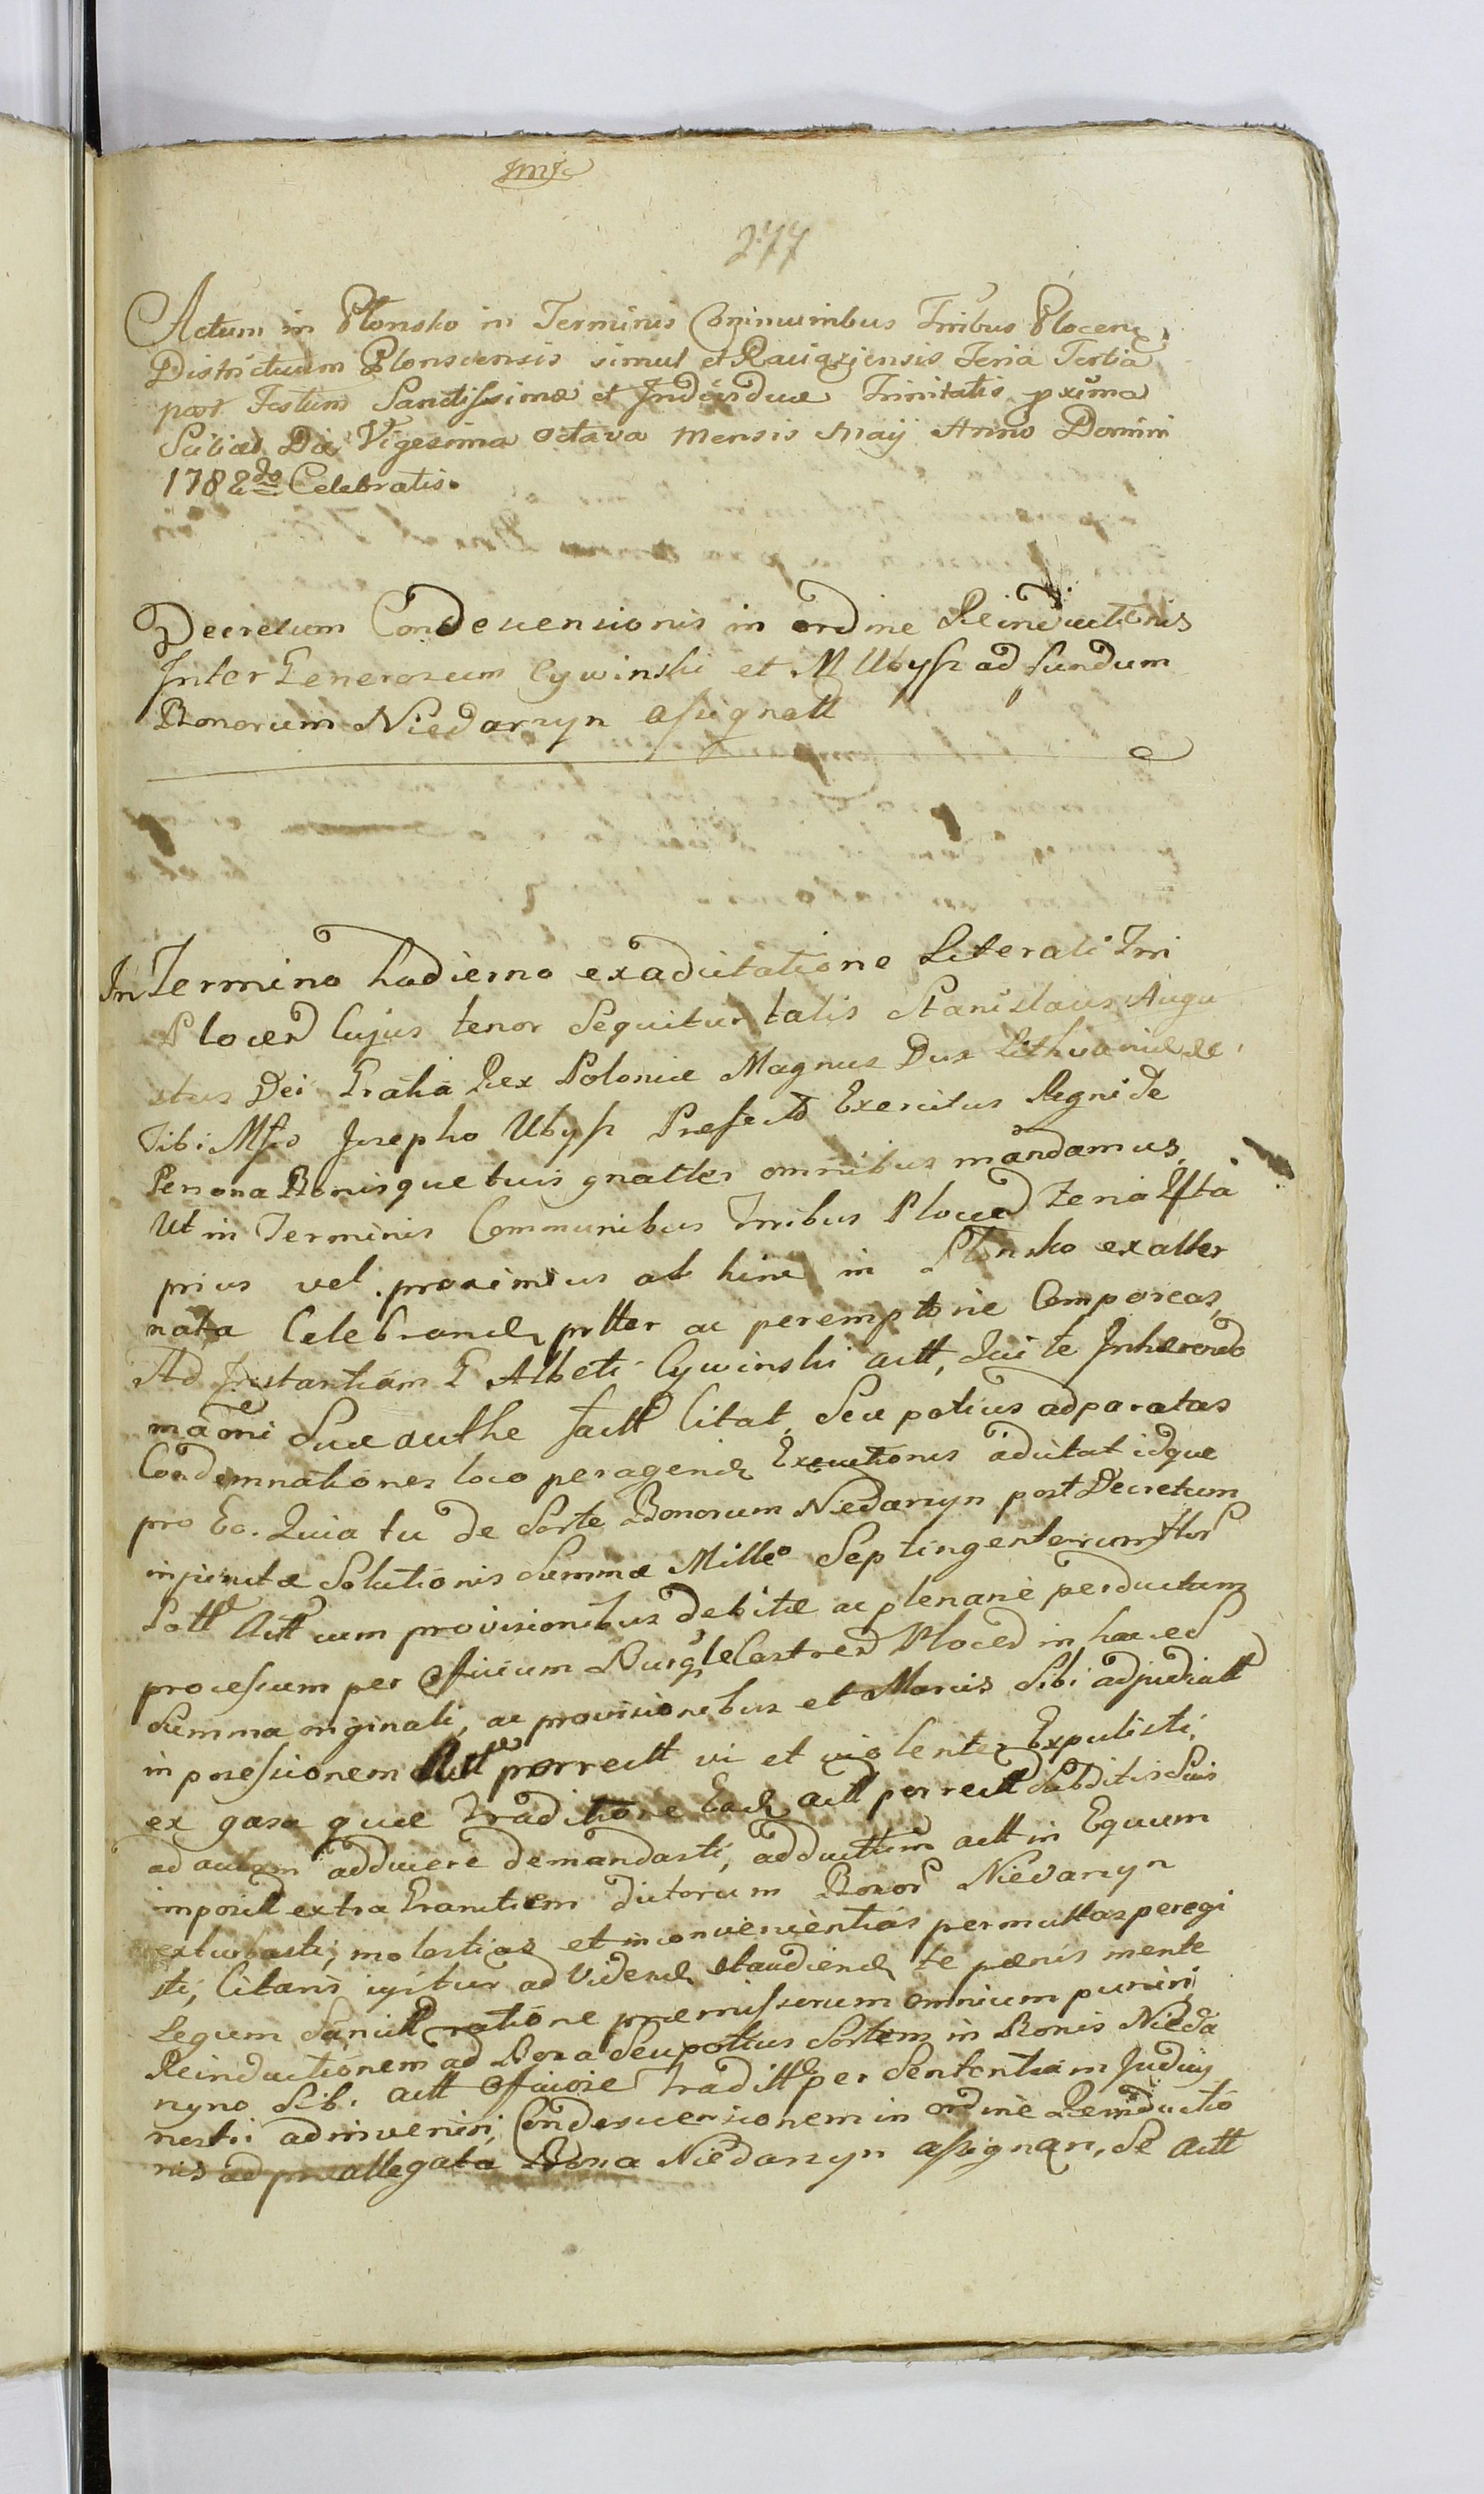 277
Actum in Płonsko in Terminis Communibus Trribus Plocen,
Districtuum Plonscensis simul et Raciązensis Feria Tertia
post Festum Sanctissimæ et Individuæ Trinitatis pxima
Scilicet Die Vigesima Octava Mensis Maij Anno Domini
1782do Celebratis.
Decretum Condescensionis in ordine Reinductionis
Inter Generosum Cywinski et M Ubysz ad fundum
Bonorum Niedarzyn assignatt
In Termino hodierno exadcitatione Literali Trri
Plocen Cujus tenor Sequitur talis Stanislaus Augu
stus Dei Gratia Rex Poloniæ Magnus Dux Lithvaniæ &c
Tibi Mfco Josepho Ubysz Præfecto Exercitus Regni de
Persona Bonisque tuis gnalter omnibus mandamus
Ut in Terminis Communibus Trribus Plocen Feria
prius vel proximius ab hinc in Płonsko exalter
nata Celebrand, pntter ac peremptorie Compareas,
Ad Instantiam G Alberti Cywinski actt, Qui te Inhærendo
Suæ factt Citat, Seu potius adparatas
Condemnationes loco peragend Executionis adcitat idque
pro Eo. Quia tu de Sorte Bonorum Niedarzyn post Decretum
injunctæ Solutionis Summæ Mille Septingentorum flor
Poll Actt cum provisionibus debitæ ac plenarie perductum
processum per Officium Burgle Castren Plocen in hac ed
Summa originali, ac provisionibus et Marcis Sibi adjudicatt
in possessionem Actt porrectt vi et violenter Expulisti,
ex gasa quæ traditione Ead actt porrectt Subditis Suis
ad aulam adducere demandasti, adductum actt in Equum
imposit extra Granitiem dictorum Bonor Niedarzyn
exturbasti, molestias et inconvenientias permultas peregi
sti, Citaris igitur ad Vidend et audiend te pænis mente
Legum Sancitt ratione præmissorum omnium puniri,
Reinductionem ad Bona Seu potius Sortem in Bonis Nieda
rzyno Sibi actt Officiose traditt per Sententiam Judicij
nostri adinveniri, Condescensionem in ordine Reinductio
nis ad præallegata Bona Niedarzyn assignari, Se actt